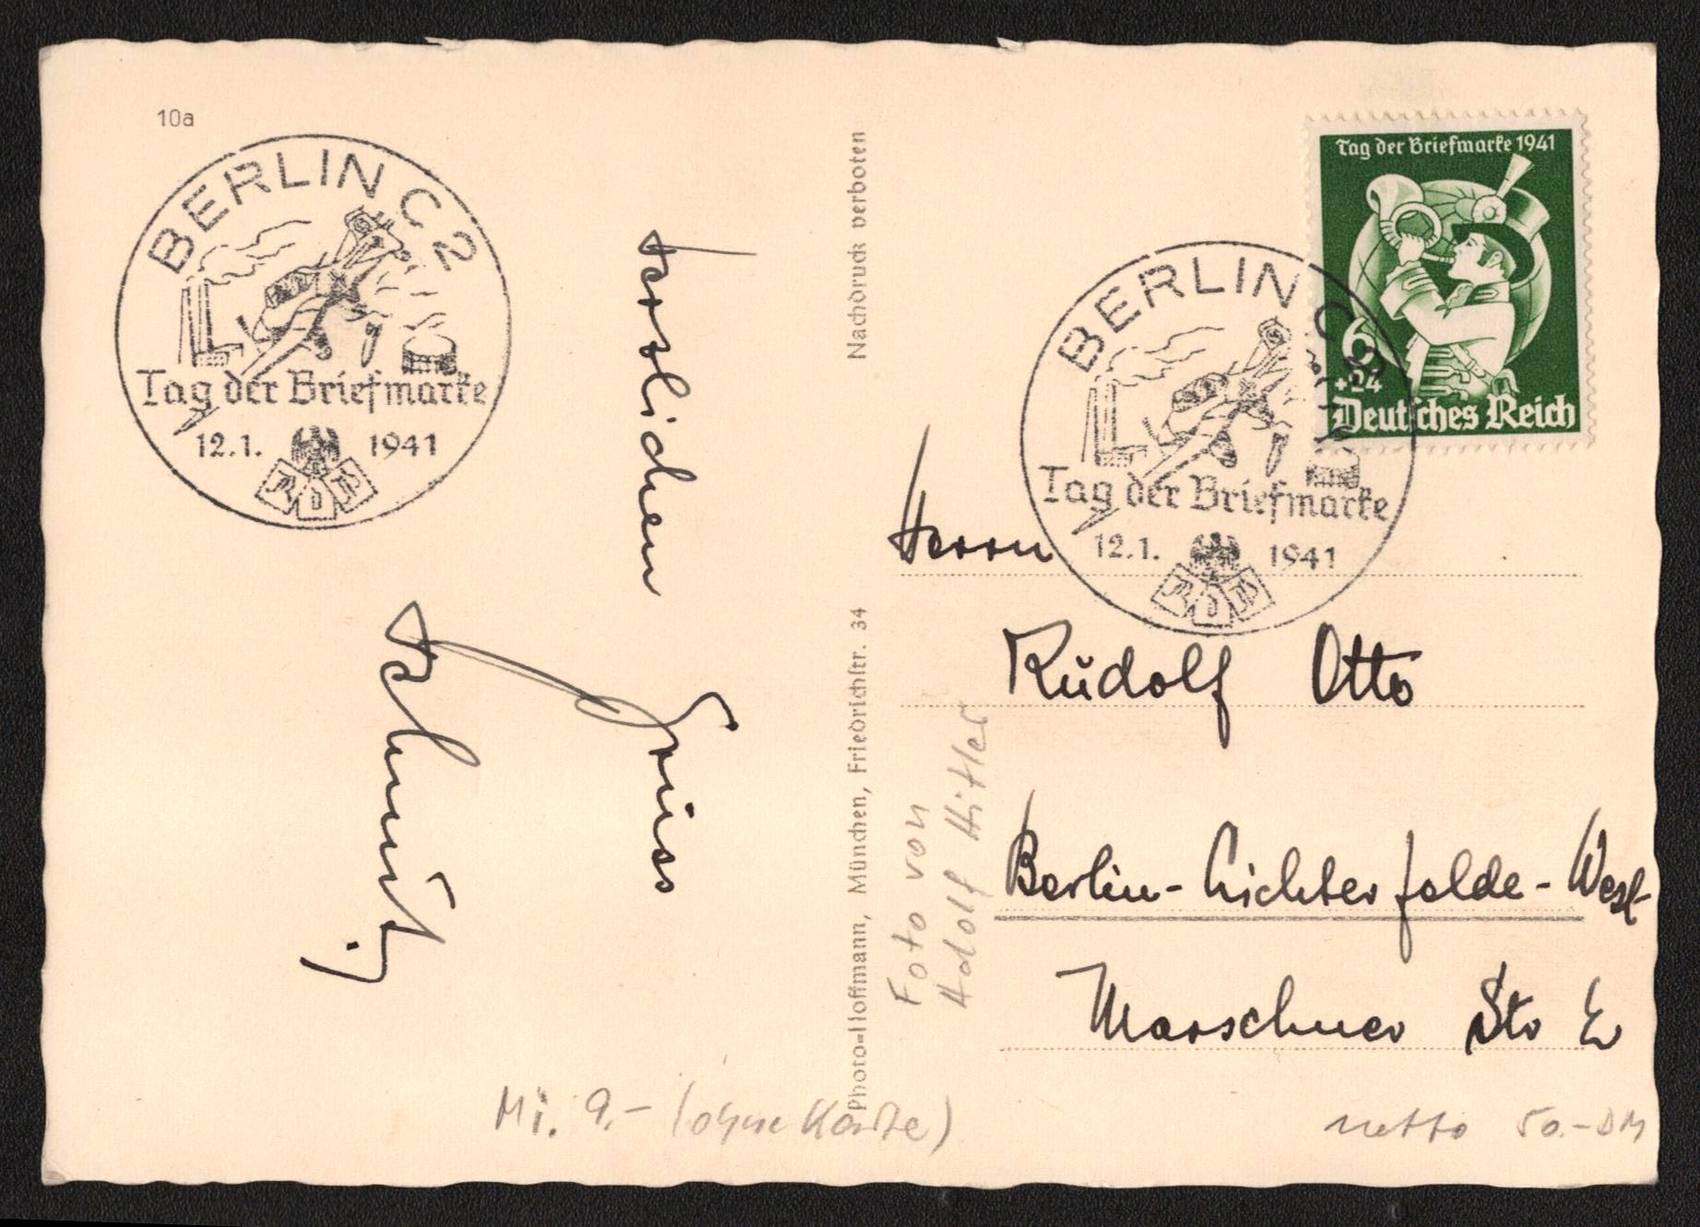 10a
BERLIN C2
Tag der Briefmarke
12.1. 1941
R D P
herzlichen
Gruss
Schmitz.
Nachdruck verboten
Photo-Hoffmann, München, Friedrichstr. 34
Tag der Briefmarke 1941
6
+24
Deutsches Reich
BERLIN C2
Tag der Briefmarke
12.1. 1941
Herrn
Rudolf Otto
Berlin-Lichterfelde-West
Marschner Str
Foto von
Adolf Hitler
Mi. 9.- (ohne Karte)
netto 50.-DM